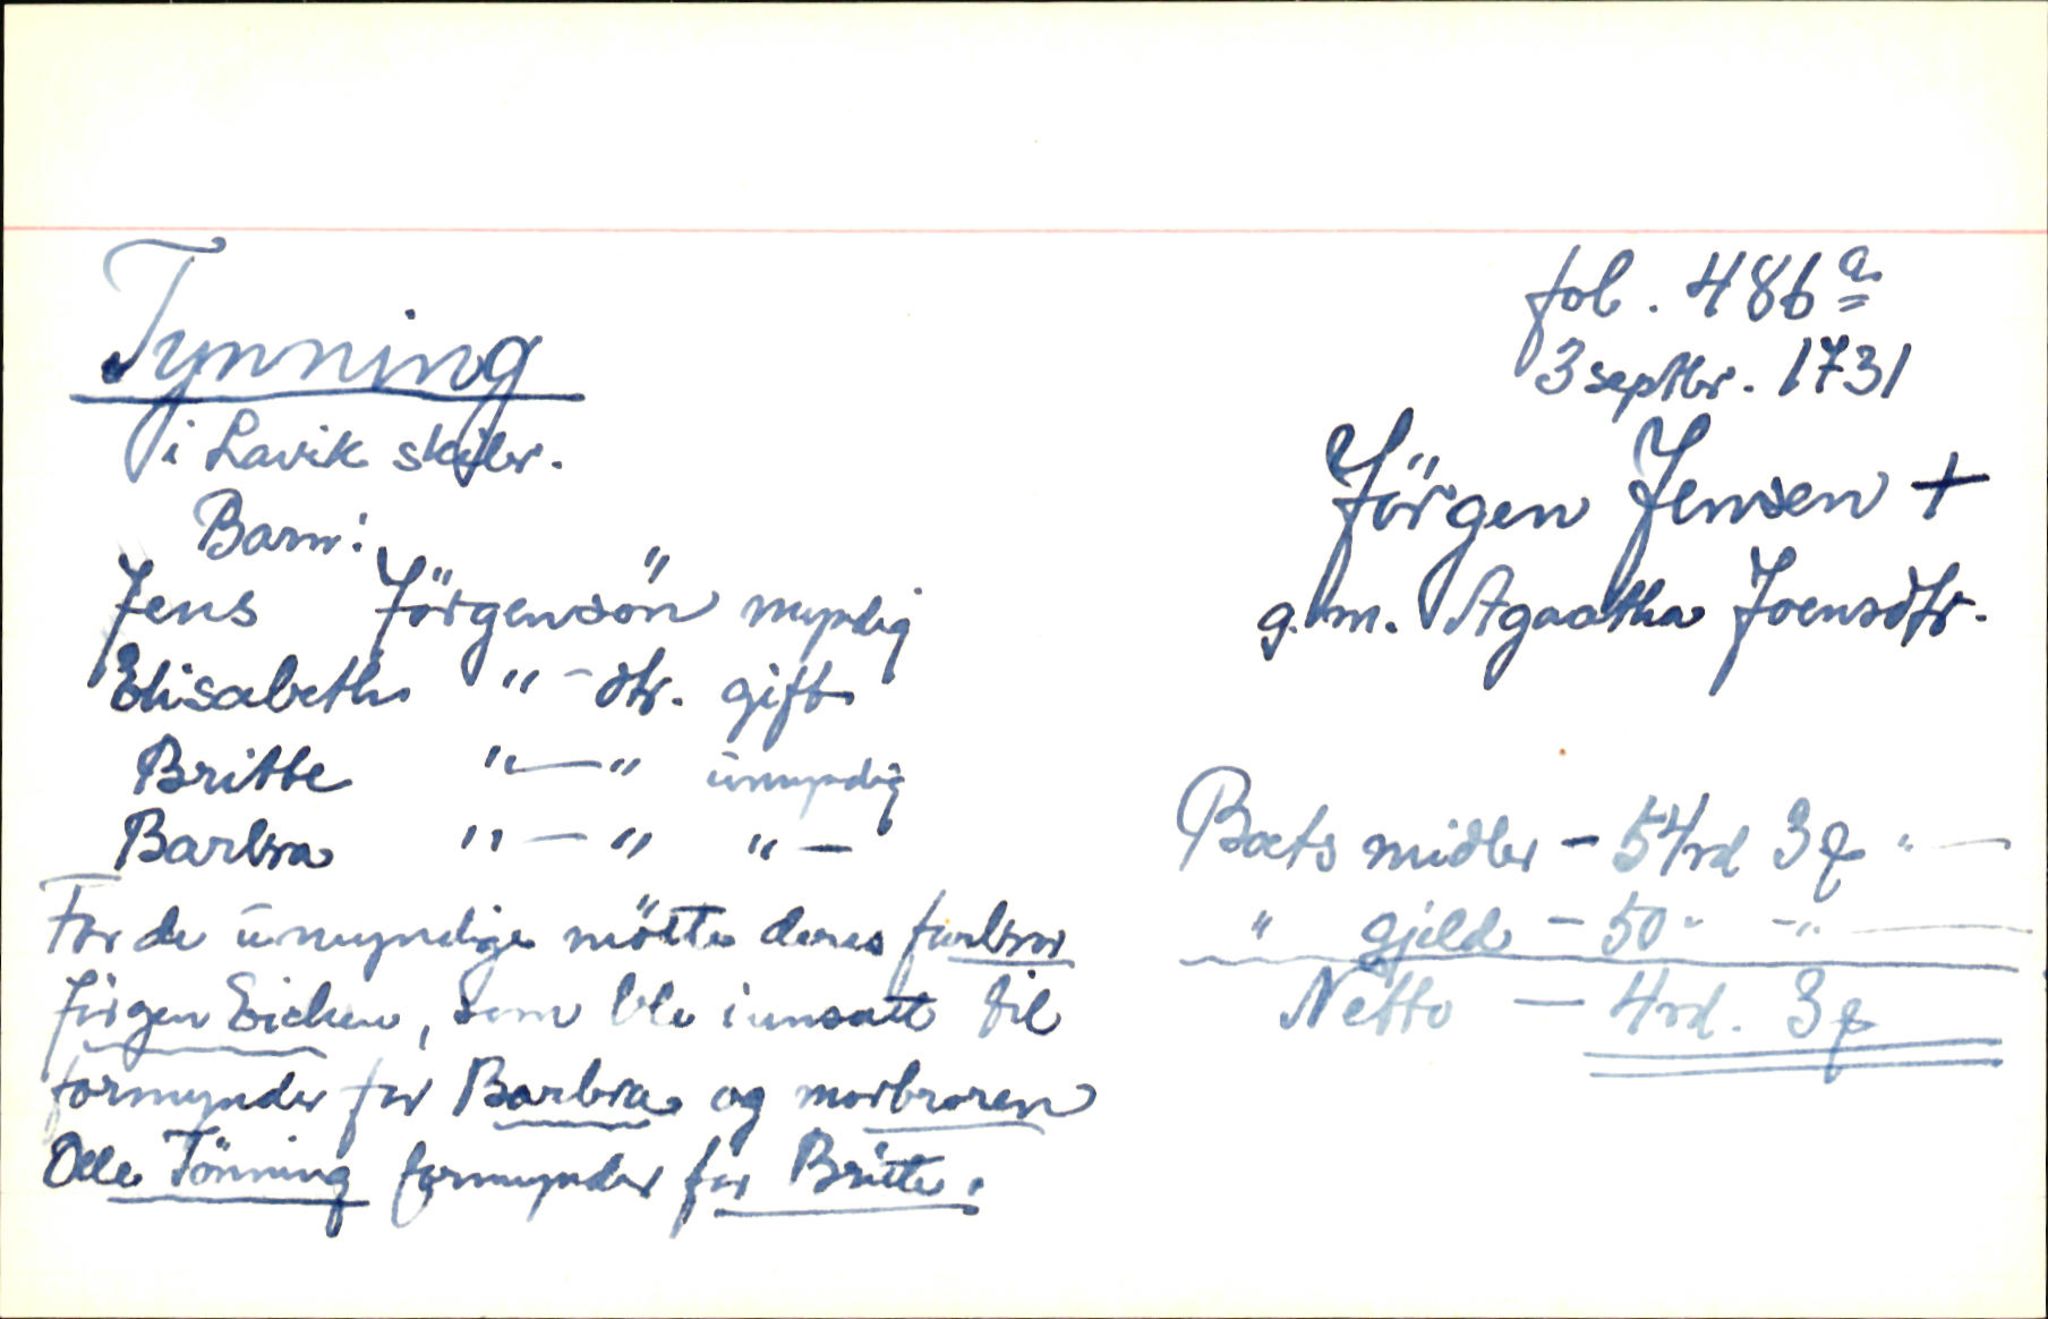 Tynning
i Lavik skibr.
Barn:
Jens Jörgensön myndig
Elisabeth " - dtr. gift
Britte " — " umyndig
Barbra " — " " —
For de umyndige mötte deres farbror
Jörgen Eichen, som ble innsatt til
formynder for Barbra og morbroren
Olle Tönning formynder for Britte.
fol. 486 a
3 septbr. 1731
Jörgen Jensen +
g. m. Agaatha Joensdtr.
Boets midler - 54 rd 3 q " —
" gjeld - 50 " - " —
Netto — 4 rd. 3 q